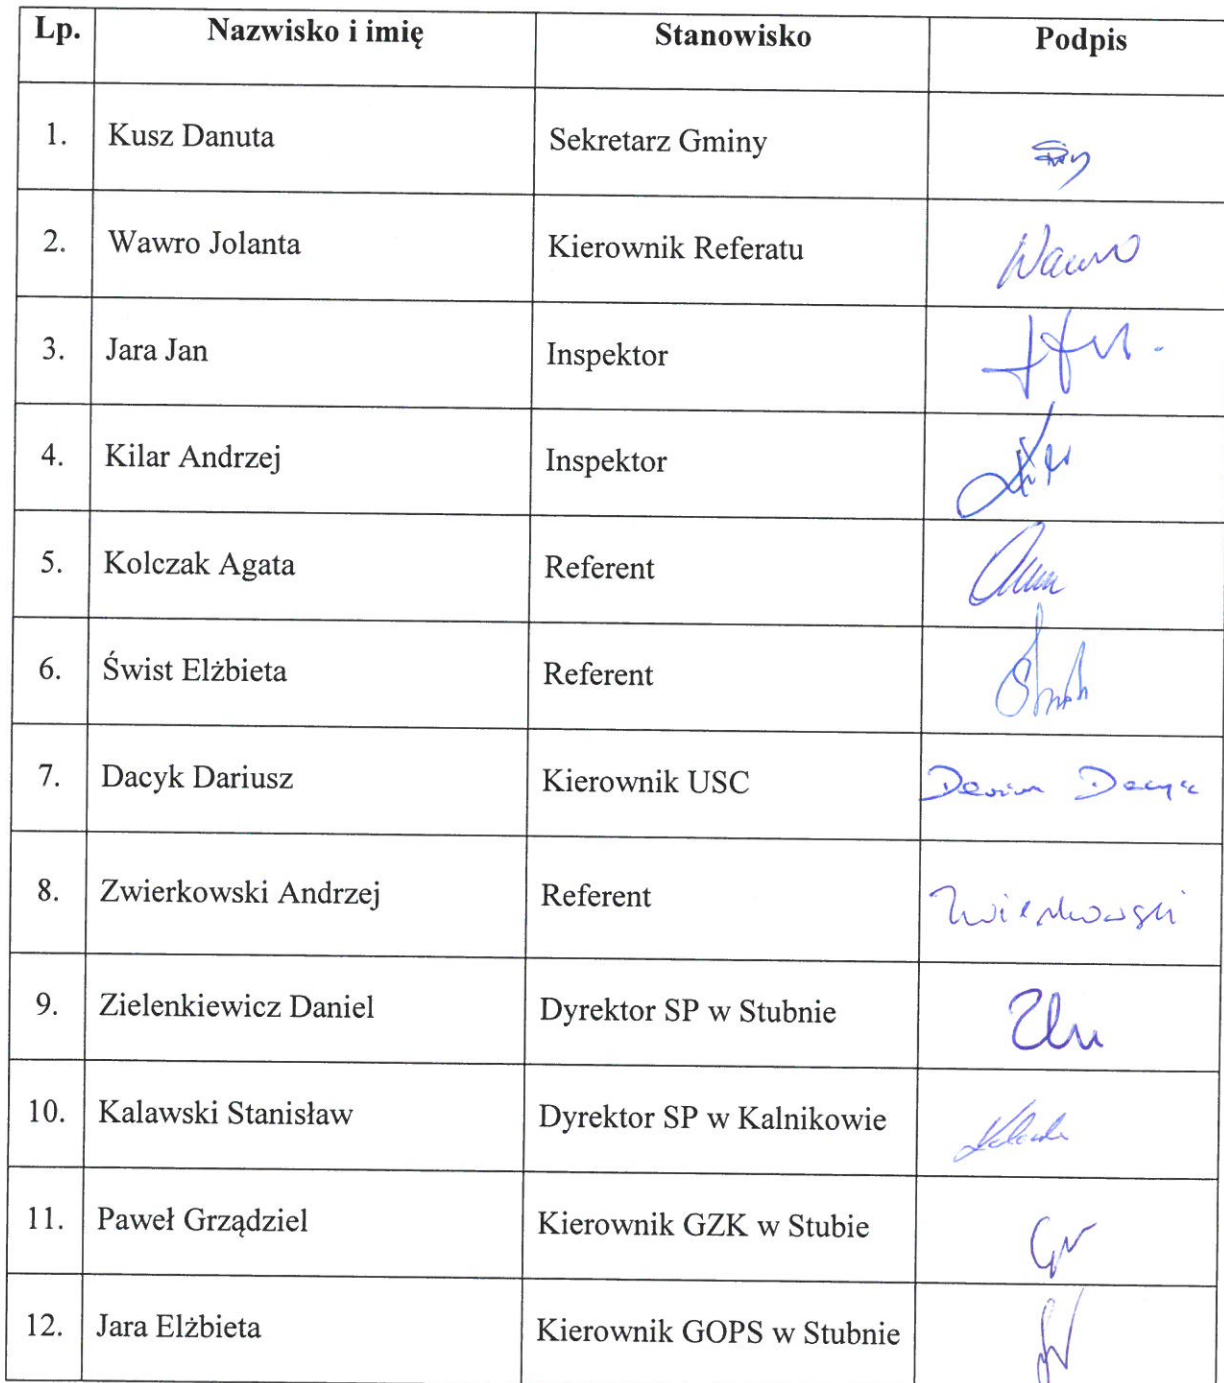 Lp. Nazwisko i imię Stanowisko Podpis
1. Kusz Danuta Sekretarz Gminy
2. Wawro Jolanta Kierownik Referatu Wawro
3. Jara Jan Inspektor
4. Kilar Andrzej Inspektor
5. Kolczak Agata Referent
6. Świst Elżbieta Referent
7. Dacyk Dariusz Kierownik USC Dariusz Dacyk
8. Zwierkowski Andrzej Referent Zwierkowski
9. Zielenkiewicz Daniel Dyrektor SP w Stubnie
10. Kalawski Stanisław Dyrektor SP w Kalnikowie
11. Paweł Grządziel Kierownik GZK w Stubie
12. Jara Elżbieta Kierownik GOPS w Stubnie